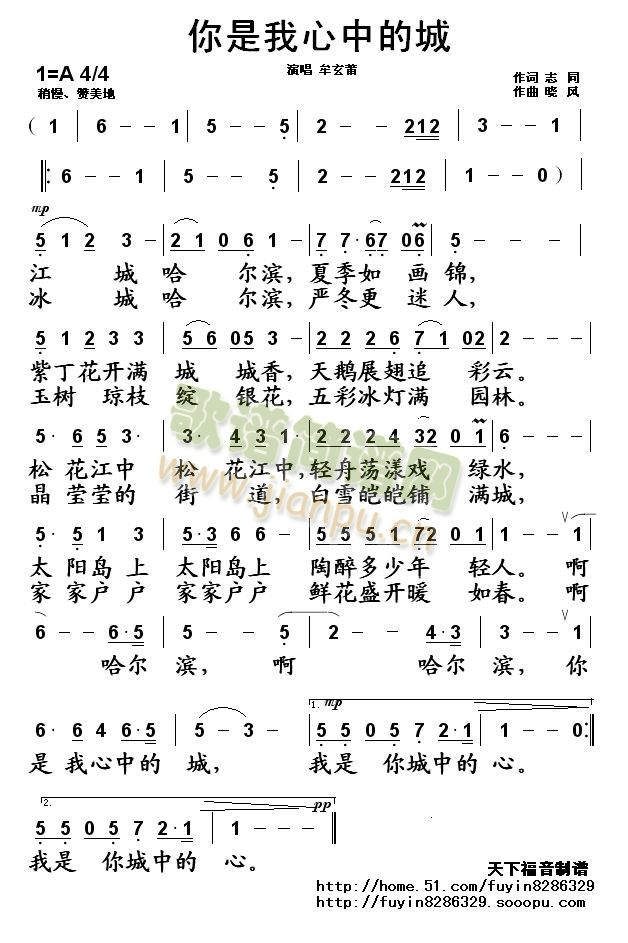 你是我心中的城
1=A 4/4
演唱 牟玄莆
作词 志 同
稍慢、赞美地
作曲 晓 风
( 1 | 6 - - 1 | 5 - - 5 | 2 - - 212 | 3 - - 1 |
‖: 6 - - 1 | 5 - - 5 | 2 - - 212 | 1 - - 0 )
mp
5 1 2 3 - | 2 1 0 6 1 | 7 7· 67 06 | 5 - - - |
江 城 哈 尔滨，夏季如 画锦，
冰 城 哈 尔滨，严冬更 迷人，
5 1 2 3 3 | 5 6 05 3 | 2 2 2 6 7 1 02 | 2 - - - |
紫丁花开满 城 城香，天鹅展翅追 彩云。
玉树 琼枝 绽 银花，五彩冰灯满 园林。
5· 6 5 3· | 3· 4 3 1· | 2 2 2 4 32 0 1 | 6 - - - |
松 花江中 松 花江中，轻舟荡漾戏 绿水，
晶 莹莹的 街 道，白雪皑皑铺 满城，
5· 5 1 3 | 5·3 6 6 | 5 5 5 1 72 0 1 | 1 - - 1 |
太 阳岛上 太阳岛上 陶醉多少年 轻人。啊
家 家户户 家家户户 鲜花盛开暖 如春。啊
6 - - 6·5 | 5 - - 5 | 2 - - 4·3 | 3 - - 1 |
哈尔 滨， 啊 哈尔 滨，你
1. mp
6· 6 4 6·5 | 5 - 3 - | 5 5 0 5 7 2·1 | 1 - - 0 :‖
是 我心中的 城， 我是 你城中的 心。
2. pp
5 5 0 5 7 2·1 | 1 - - - ‖
我是 你城中的 心。
天下福音制谱
http://home.51.com/fuyin8286329
http://fuyin8286329.sooopu.com.
歌谱简谱网
www.jianpu.cn